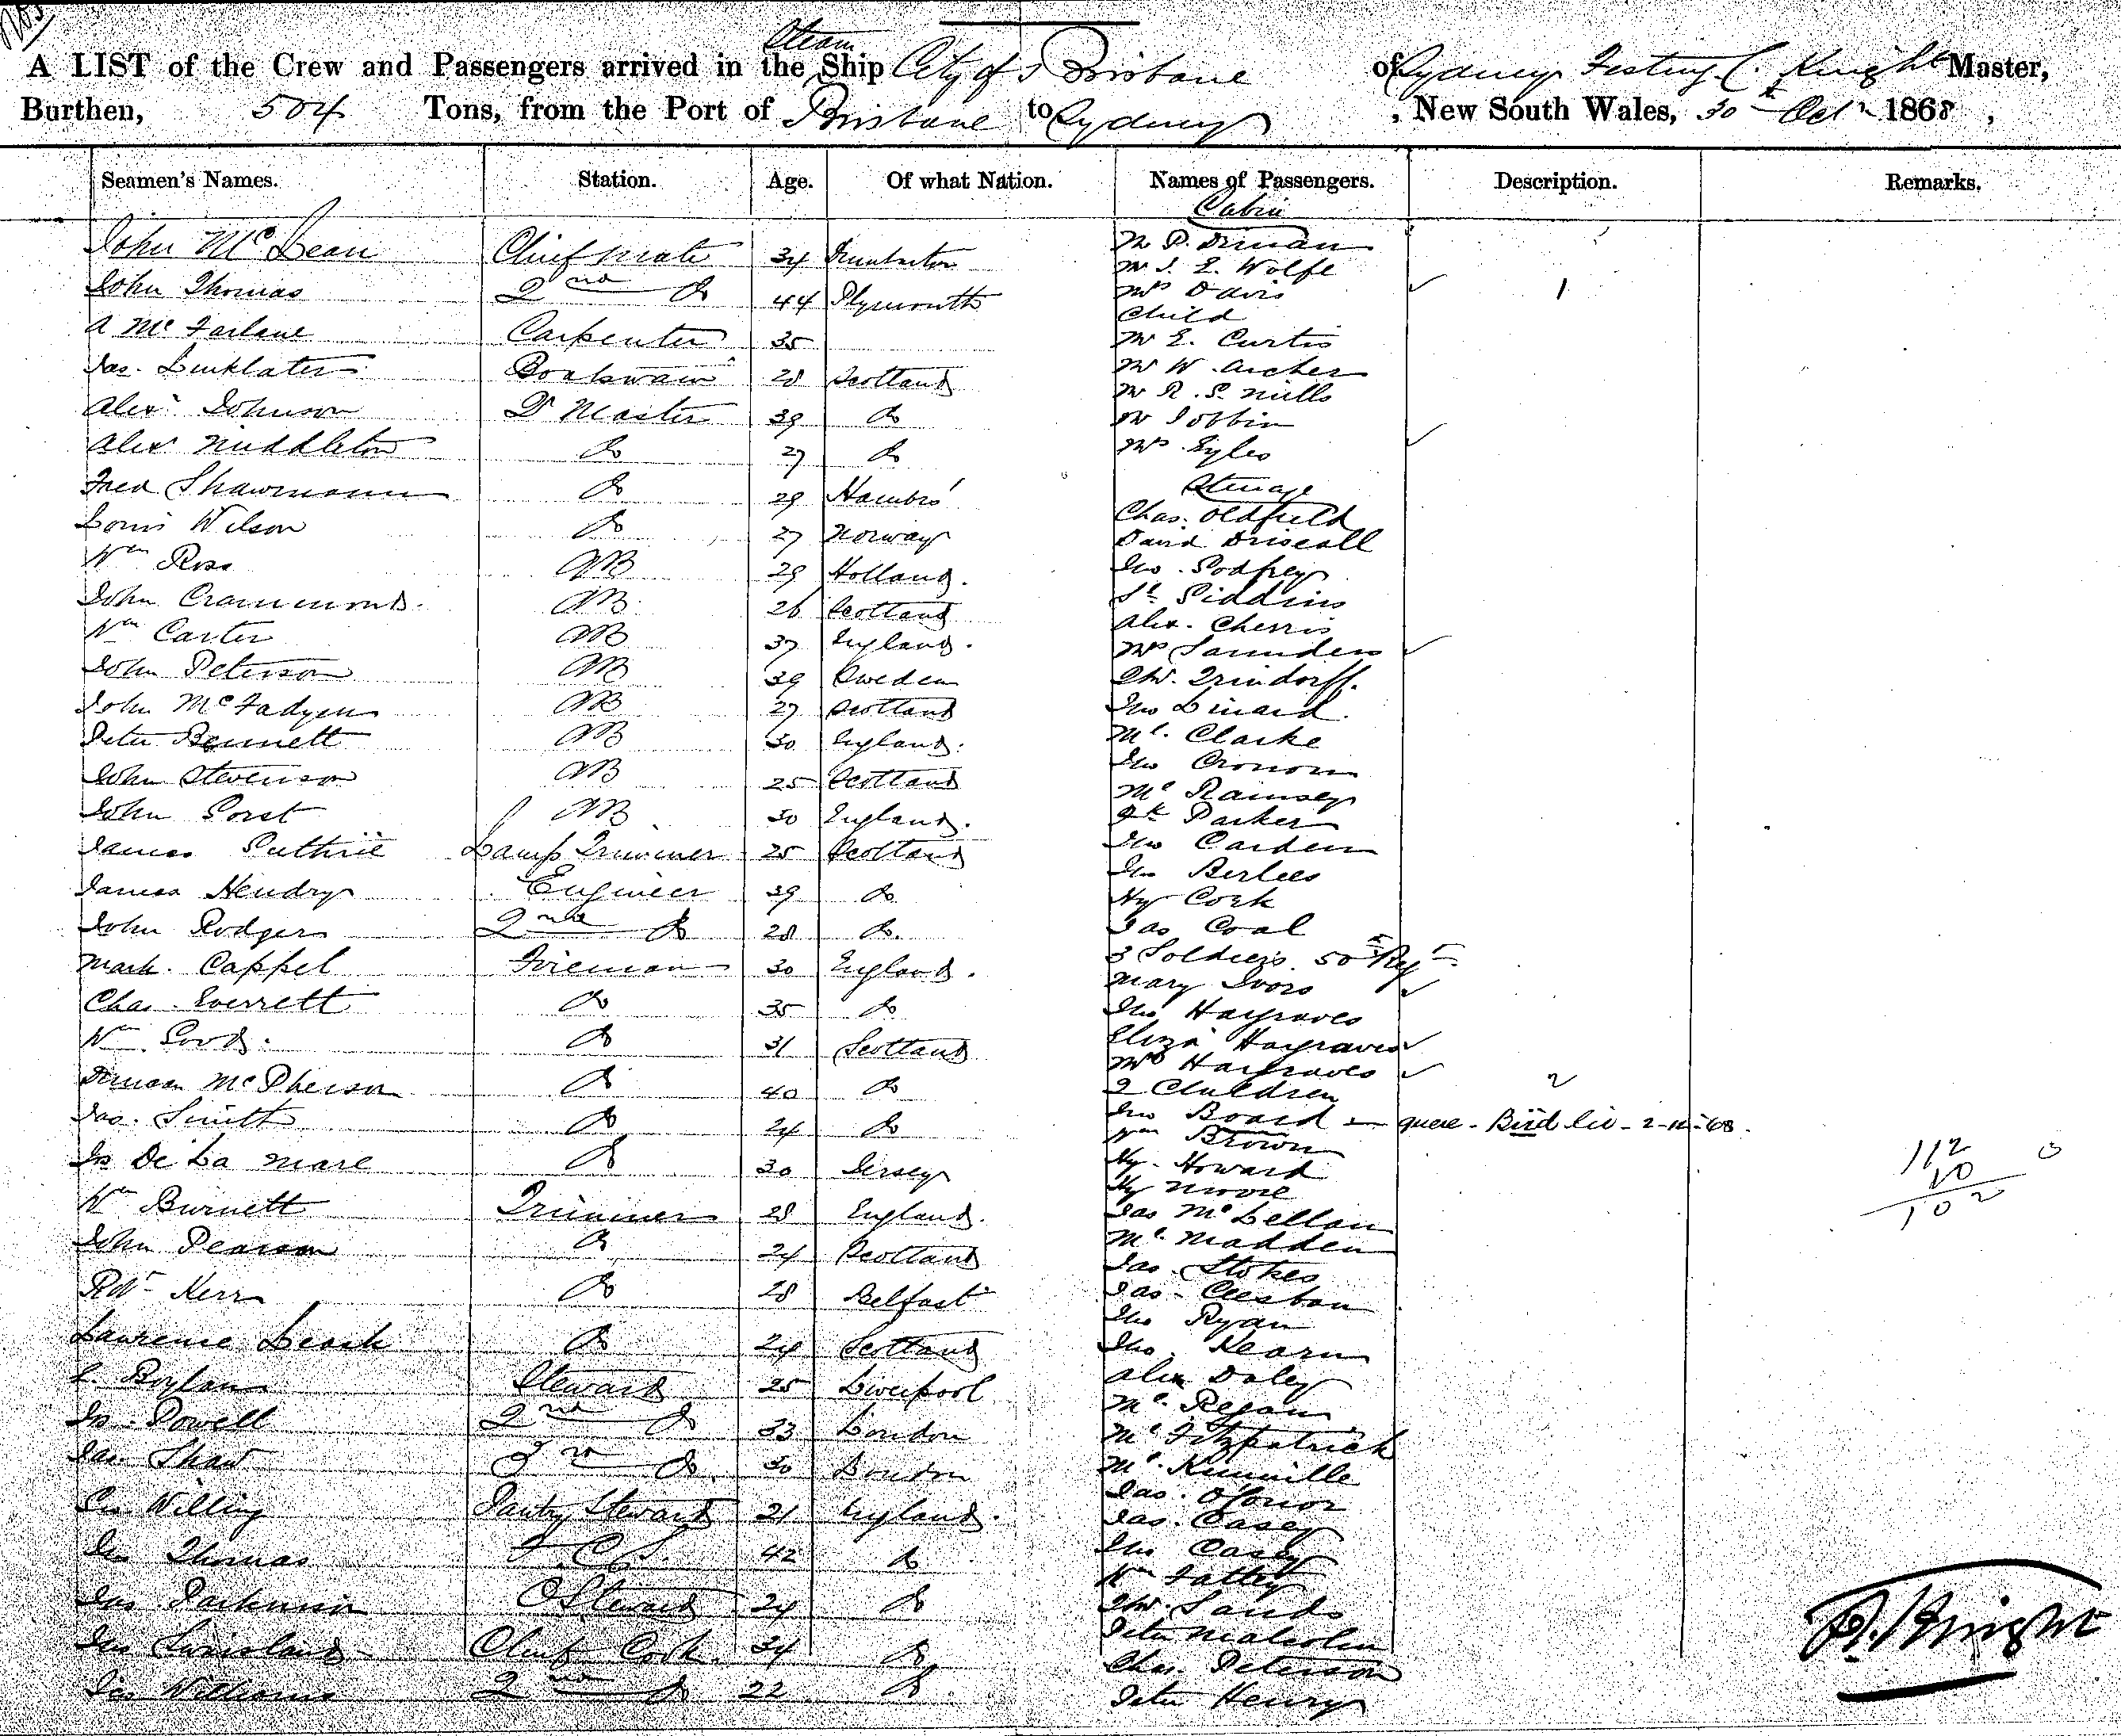 A LIST of the Crew and Passengers arrived in the Steam Ship City of Brisbane of Sydney Festing C. Knight Master,
Burthen, 504 Tons, from the Port of Brisbane to Sydney, New South Wales, 30th Octr 1868,
Seamen's Names. Station. Age. Of what Nation. Names of Passengers. Description. Remarks.
Cabin
John McLean Chief Mate 34 Dumbarton
John Thomas 2nd Do 44 Plymouth
A McFarlane Carpenter 35
Jas. Linklater Boatswain 28 Scotland
Alexr Johnson Qr Master 39 Do
Alexr Middleton Do 27 Do
Fred Shawmann Do 29 Hambro'
Louis Wilson Do 27 Norway
Wm Ross AB 29 Holland.
John Crammond. AB 26 Scotland
Wm Carter AB 37 England.
John Peterson AB 39 Sweden
John McFadyen AB 27 Scotland
Peter Bennett AB 30 England.
John Stevenson AB 25 Scotland
John Gorst AB 30 England.
James Guthrie Lamp Trimmer 25 Scotland
James Hendry Engineer 39 Do
John Rodger 2nd Do 28 Do.
Mark. Cappel Fireman 30 England.
Chas. Everrett Do 35 Do
Wm Good. Do 31 Scotland
Duncan McPherson Do 40 Do
Jas. Smith Do 24 Do
Jn De La Mare Do 30 Jersey
Wm Burnett Trimmer 28 England.
John Pearson Do 24 Scotland
Robt Kerr Do 28 Belfast
Laurence Leask Do 24 Scotland
E. Boylan Steward 25 Liverpool
Jn. Powell 2nd Do 33 London
Jas. Shaw 3rd Do. 30 London
Willing Pantry Steward 21 England.
Jno Thomas F. C. S. 42 Do
Jas Parkinson Steward 24 Do
Jno Chief Cook. 34 Do
Jas Williams 2nd Do 22 Do
Mr P. Dinan
Mr J. E. Wolfe
Mrs Davis 1
Child
Mr E. Curtis
Mr W. Archer
Mr R. S. Mills
Mr Tobbin
Mrs Eyles
Steerage
Chas. Oldfield
David Driscoll
Jno. Godfrey
St. Siddins
Alex. Cherris
Mrs Saunders
Chs. Trindorff.
Jno Linard.
Ml. Clarke
Jno Cronon
Ml Ramsey
Fk Parker
Jno Carden
Jno Berlees
Hy Cork
Jas Coal
3 Soldiers. 50th Regt
Mary Ivors
Jno Hargraves
Eliza Hargraves
Mrs Hargraves
2 Children 2
Jno Board — quere - Bird liv - 2-11-68.
Wm Brown
Hy. Howard
Hy Moore
Jas McLellan
Ml. Madden
Jas. Stokes
Jas. Cleeban
Jno Ryan
Jno. Kearn
Alex Daley
Ml. Regan
Ml Fitzpatrick
Ml. Kinville
Jas. OConor
Jas. Casey
Jno Casey
Wm Fattey
Sands
Peter Malcolm
Chas. Peterson
Peter Henry
112
10 0
102
Knight